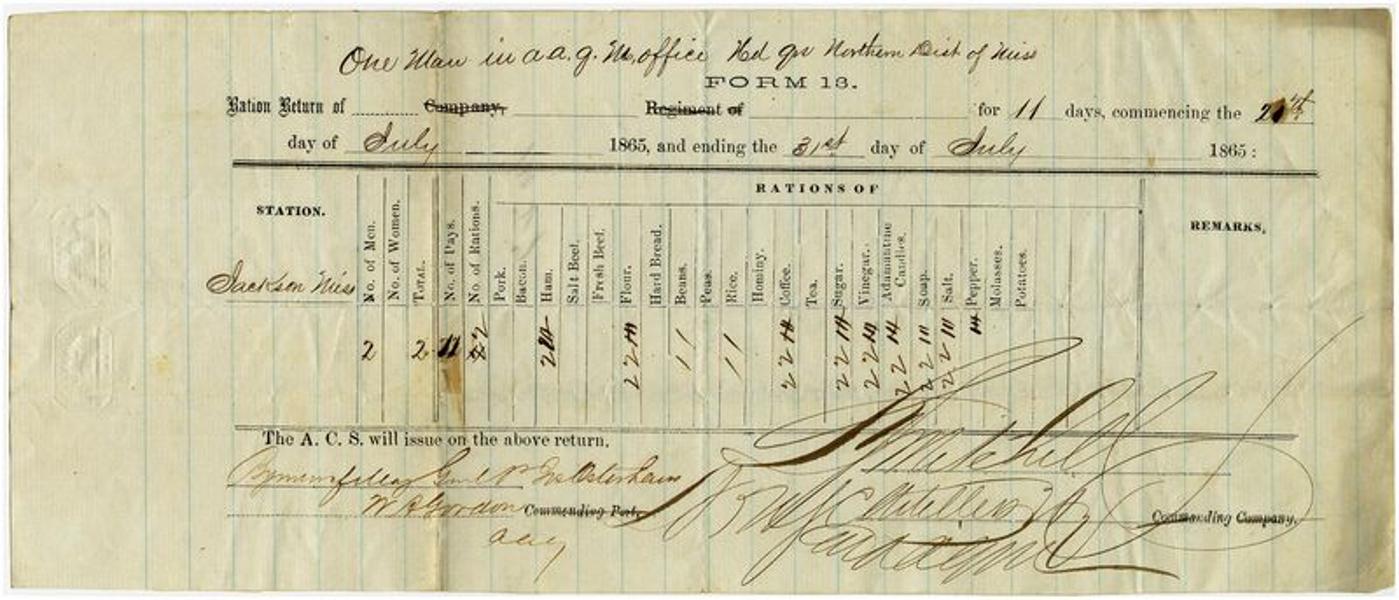 One Man in a a. g. M. office Hd qrs Northern Dist of Miss
FORM 13.
Ration Return of Company, Regiment of for 11 days, commencing the
day of July 1865, and ending the 31st day of July 1865:
RATIONS OF
STATION. No. of Men. No. of Women. TOTAL. No. of Days. No. of Rations. Pork. Bacon. Ham. Salt Beef. Fresh Beef. Flour. Hard Bread. Beans. Peas. Rice. Hominy. Coffee. Tea. Sugar. Vinegar. Adamantine Candles. Soap. Salt. Pepper. Molasses. Potatoes. REMARKS.
Jackson Miss
2 2 11 22 22 11 11 22 22 22 22 22 22
The A. C. S. will issue on the above return,
Genl P. Jos Osterhaus
W A Gordon Commanding Post.
Commanding Company.